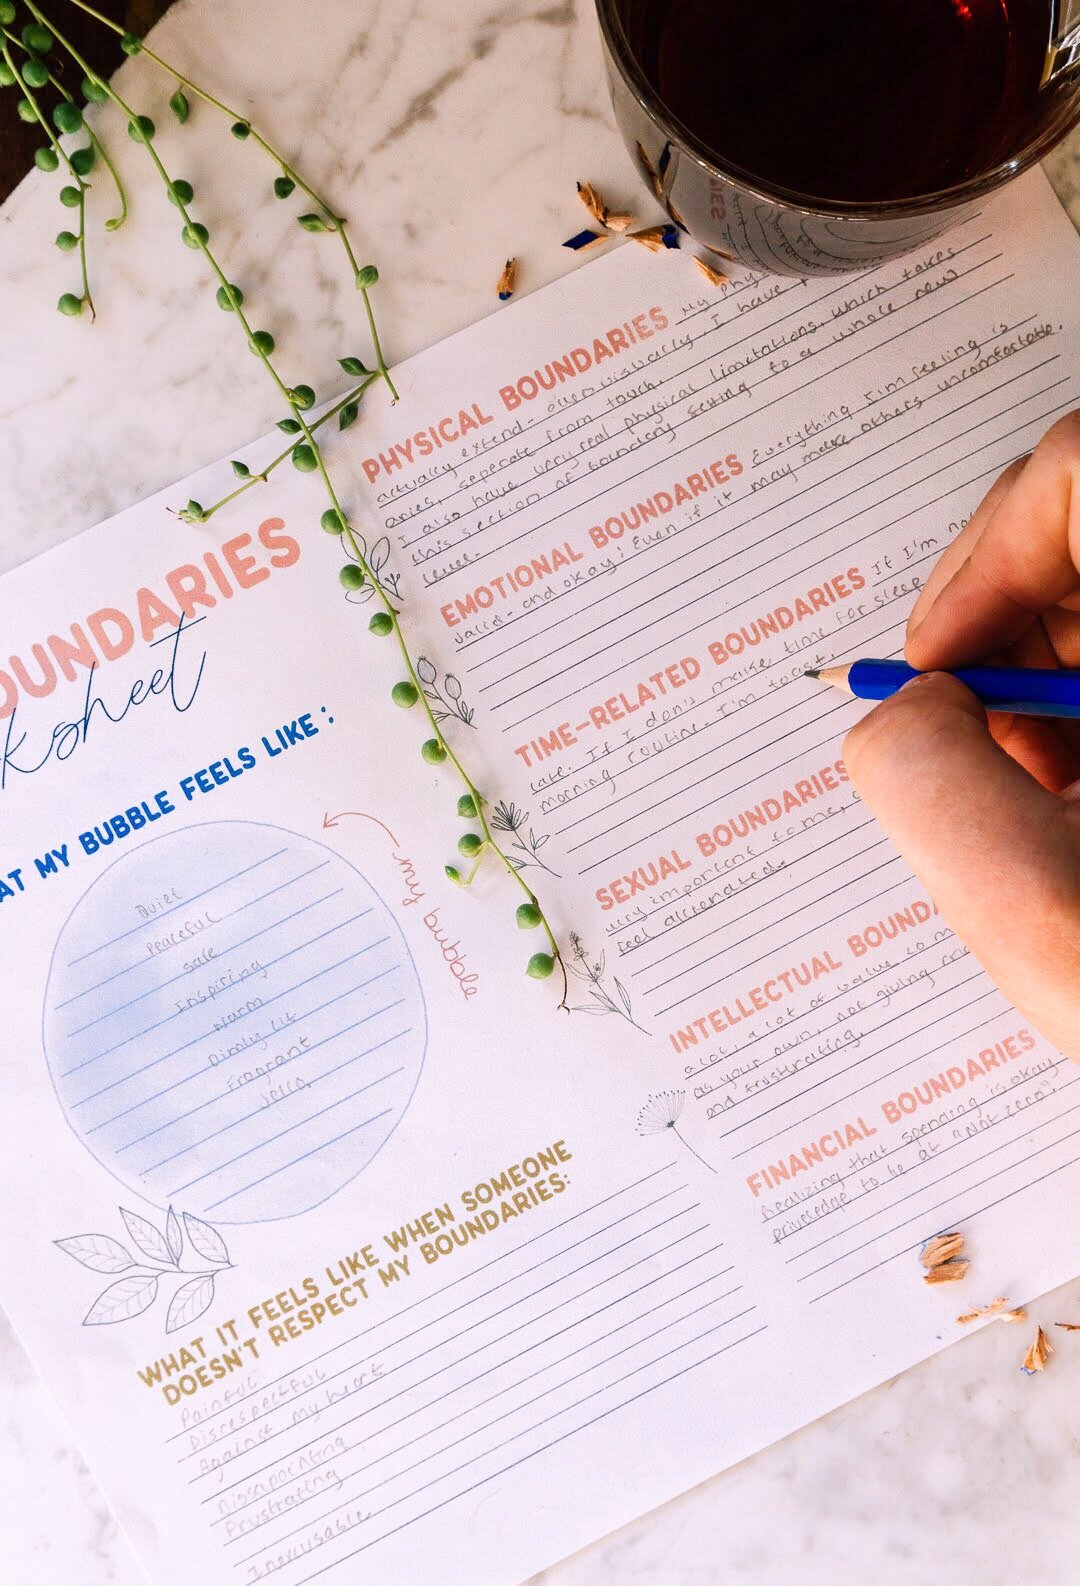 OUNDARIES
ksheet
AT MY BUBBLE FEELS LIKE:
Quiet
Peaceful
safe
Inspiring
Warm
Dimly lit
Fragrant
Jello.
my bubble
WHAT IT FEELS LIKE WHEN SOMEONE
DOESN'T RESPECT MY BOUNDARIES:
Painful
Disrespectful
Against my heart
Dissapointing
Frustrating
Inexusable
PHYSICAL BOUNDARIES My phys
actually extend- even visually. I have
aries, seperate from touch.
I also have very real physical limitations, which takes
this section of boundary setting to a whole new
level.
EMOTIONAL BOUNDARIES Everything I'm feeling is
valid- and okay! Even if it may make others uncomfortable.
TIME-RELATED BOUNDARIES If I'm no
late. If I don't make time for sleep
morning routine- I'm toast.
SEXUAL BOUNDARIES
very important to me,
feel alienated.
INTELLECTUAL BOUNDA
a lot, a lot of value to m
as your own, not giving
and frustrating.
FINANCIAL BOUNDARIES
Realizing that spending is okay
priviledge to lie at "Not zero".